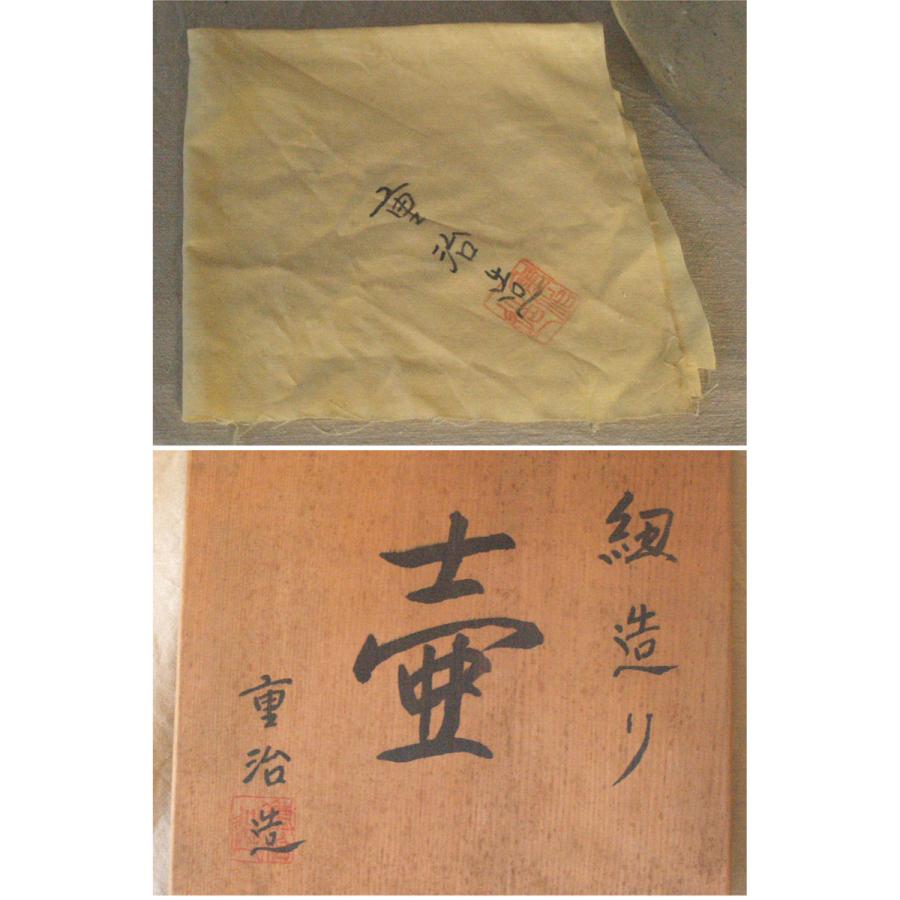 重治造
紐造り
壷
重治造